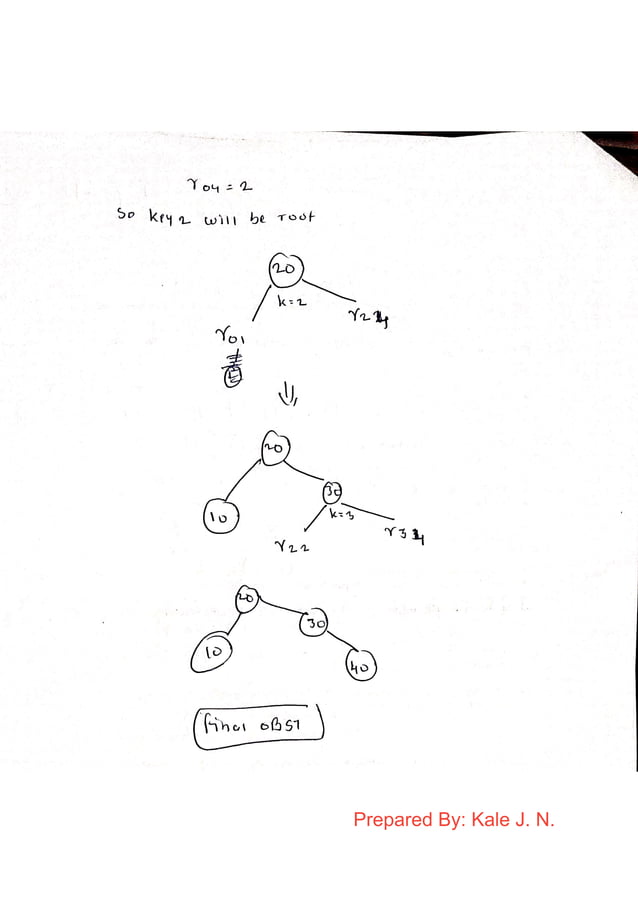 r04 = 2
So key 2 will be root
20
k=2
r01
r24
20
10
30
k=3
r22
r34
20
10
30
40
final OBST
Prepared By: Kale J. N.